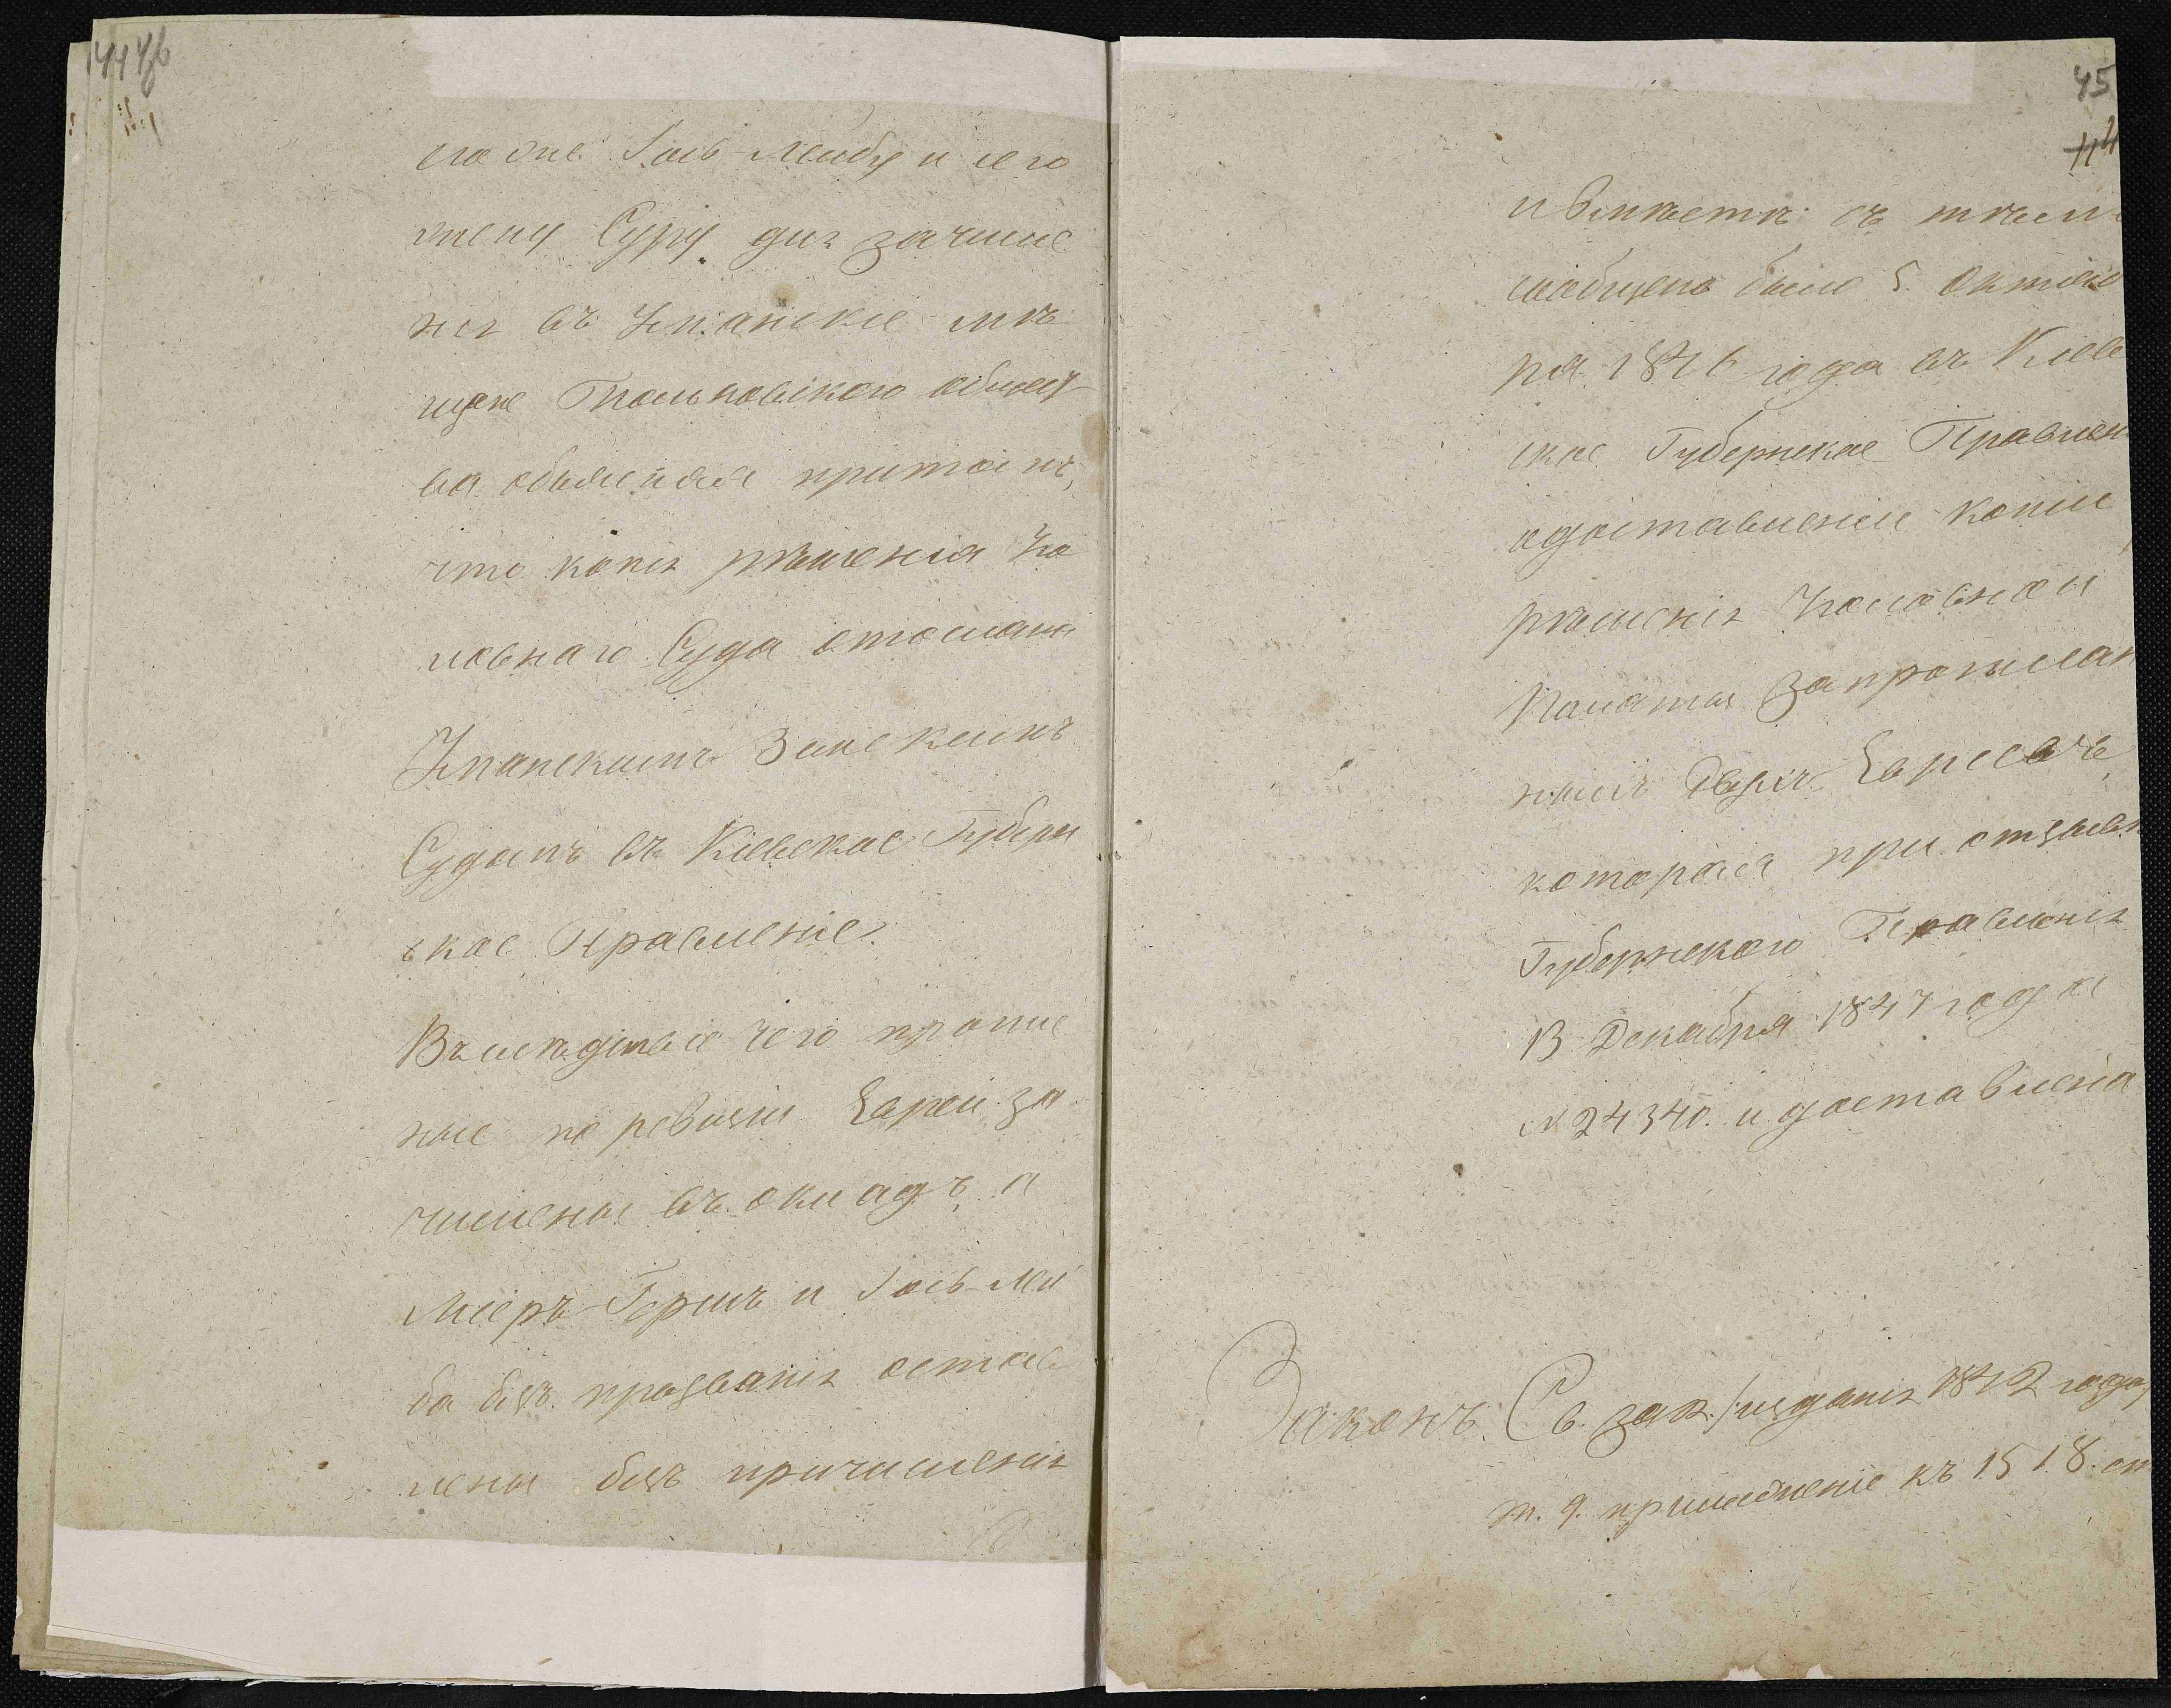 его же Іось Лейбу и его
жену Суру для зачисле
нія въ Уманскіе мѣ
щане Тальновскаго общест
ва объясняя притомъ,
что копія рѣшенія Уго
ловнаго Суда отослана
Уманскимъ Земскимъ
Судомъ въ Кіевское Губерн
ское Правленіе.
Вслѣдствіе чего пропис
ные по ревизіи Евреи за
числены въ окладъ, а
Мееръ-Гершъ и Іось-Лей
ба безъ прозванія остав
лены безъ причисленія
45
44
и вмѣстѣ съ тѣмъ
сообщено было 5. Октяб
ря 1846 года въ Кіев
ское Губернское Правлен
о доставленіи копіи
рѣшенія Уголовной
Палаты о прописан
ныхъ двухъ Евреевъ
которая при отзывѣ
Губернского Правленія
13 Декабря 1847 года
№ 24340. и доставлена
Законъ. Св. зак. /изданія 1842 года/
т. 9. примѣчаніе къ 1518. ст